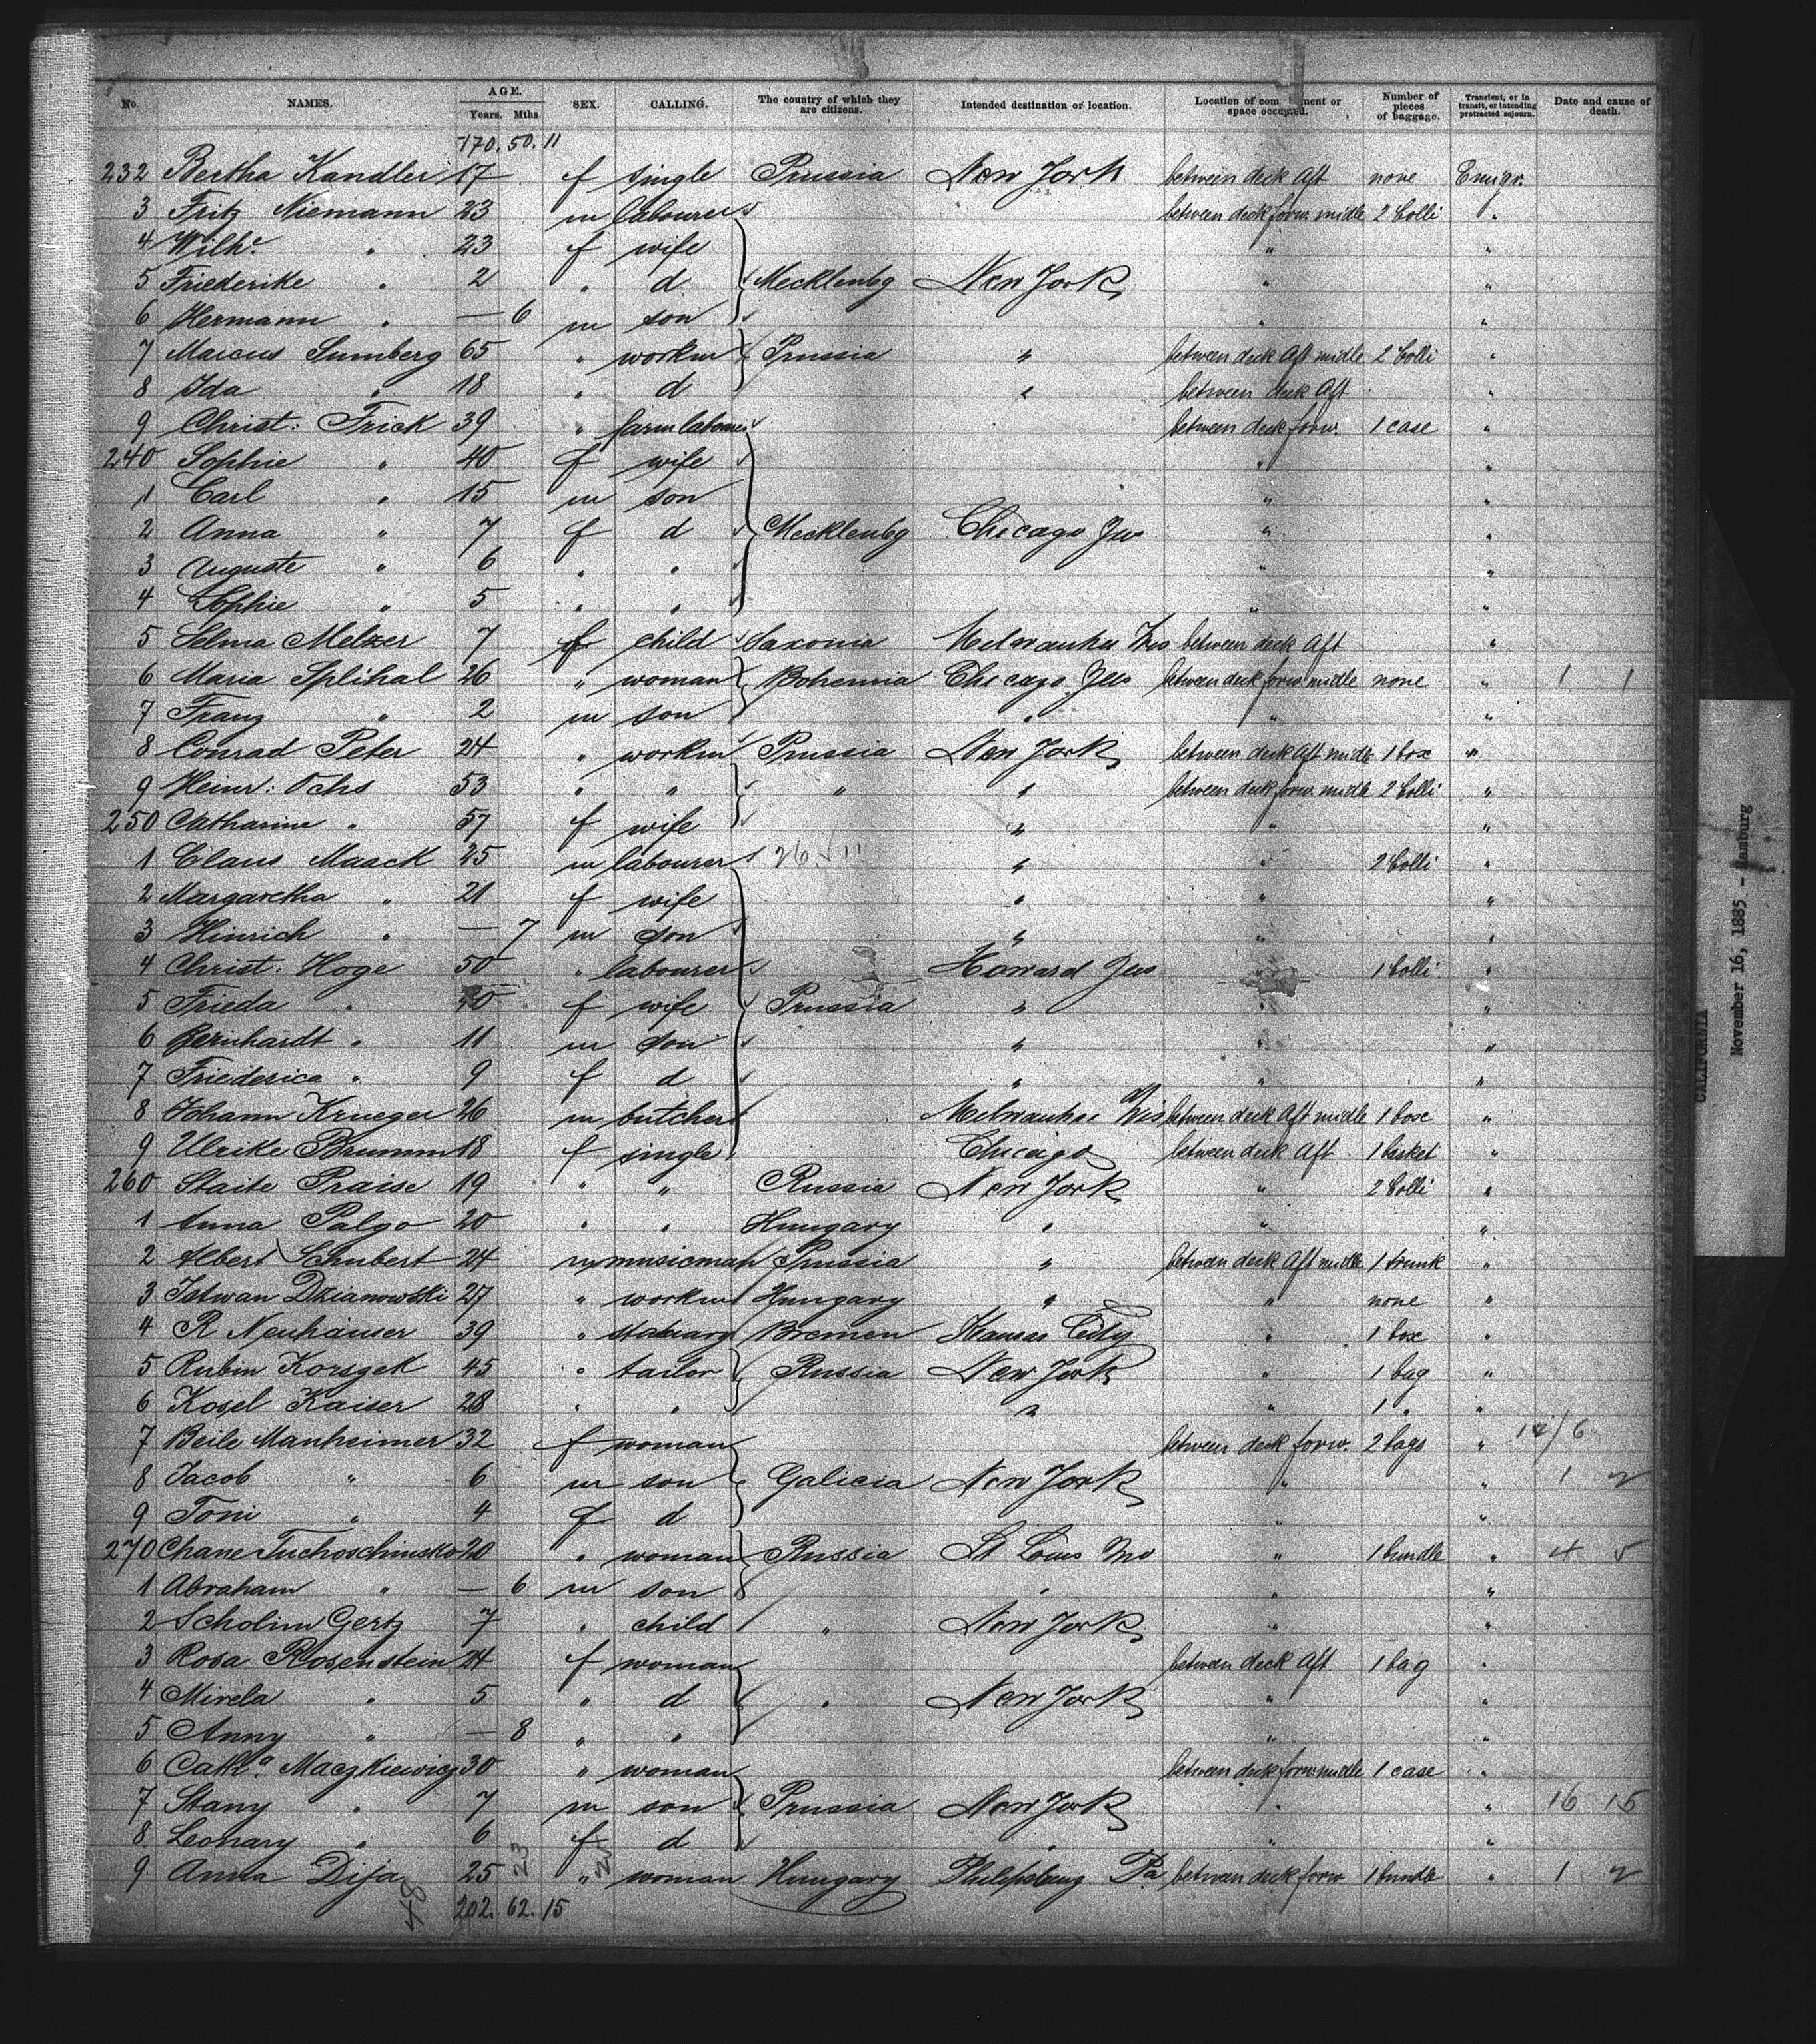 No. NAMES. AGE. Years. Mths. SEX. CALLING. The country of which they are citizens. Intended destination or location. Location of com ment or space occupied. Number of pieces of baggage. Transient, or in transit, or intending protracted sojourn. Date and cause of death.
170. 50. 11
232 Bertha Kandler 17 f single Prussia New York between deck Aft none Emigr.
3 Fritz Niemann 23 m labourer between deck forw. midle 2 Colli "
4 Wilh.e " 23 f wife " "
5 Friederike " 2 " d Mecklenbg New York " "
6 Hermann " — 6 m son " "
7 Marcus Sumberg 65 " workm Prussia " between deck Aft midle 2 Colli "
8 Ida " 18 " d " between deck Aft "
9 Christ: Frick 39 " farm labourer between deck forw. 1 case "
240 Sophie " 40 f wife " "
1 Carl " 15 m son " "
2 Anna " 7 f d Mecklenbg Chicago " "
3 Auguste " 6 " " " "
4 Sophie " 5 " " " "
5 Selma Melzer 7 f child Saxonia Milwaukee Wis between deck Aft "
6 Maria Splihal 26 " woman Bohemia Chicago between deck forw. midle none " 1 1
7 Franz " 2 m son " " "
8 Conrad Peter 24 " workm Prussia New York between deck Aft midle 1 box "
9 Heinr: Ochs 53 " " " " between deck forw. midle 2 Colli "
250 Catharine " 57 f wife " " "
1 Claus Maack 25 m labourer " " 2 Colli "
2 Margaretha " 21 f wife " " "
3 Hinrich " — 7 m son " " "
4 Christ: Hoge 50 " labourer Howard 1 Colli "
5 Frieda " 40 f wife Prussia " " "
6 Bernhardt " 11 m son " " "
7 Friederica " 9 f d " " "
8 Johann Krueger 26 m butcher Milwaukee Wis between deck Aft midle 1 box "
9 Ulrike Brumm 18 f single Chicago between deck Aft 1 basket "
260 Staite Praise 19 " " Russia New York " 2 Colli "
1 Anna Palgo 20 " " Hungary " " "
2 Albert Schubert 24 m musicman Prussia " between deck Aft midle 1 trunk "
3 Istwan Dzianowski 27 " workm Hungary " " none "
4 R Neuhäuser 39 " statuary Bremen Kansas City " 1 box "
5 Rubin Korszek 45 " tailor Russia New York " 1 bag "
6 Kosel Kaiser 28 " " " " 1 " "
7 Beile Manheimer 32 f woman between deck forw. 2 bags "
8 Jacob " 6 m son Galicia New York " " 1 2
9 Toni " 4 f d " "
270 Chane Tuchoschinsko 20 " woman Russia St Louis Mo " 1 bundle " 4 5
1 Abraham " — 6 m son " " "
2 Scholim Gertz 7 " child " New York " "
3 Rosa Rosenstein 24 f woman between deck Aft 1 bag "
4 Mirela " 5 " d " New York " "
5 Anny " — 8 " " " "
6 Cath.a Maczkiewicz 30 " woman between deck forw. midle 1 case "
7 Stany " 7 m son Prussia New York " " 16 15
8 Leonary " 6 f d " " "
9 Anna Dija 25 " woman Hungary Philipsburg Pa between deck forw 1 bundle " 1 2
48 23
202. 62. 15
CALIFORNIA
November 16, 1885 - Hamburg